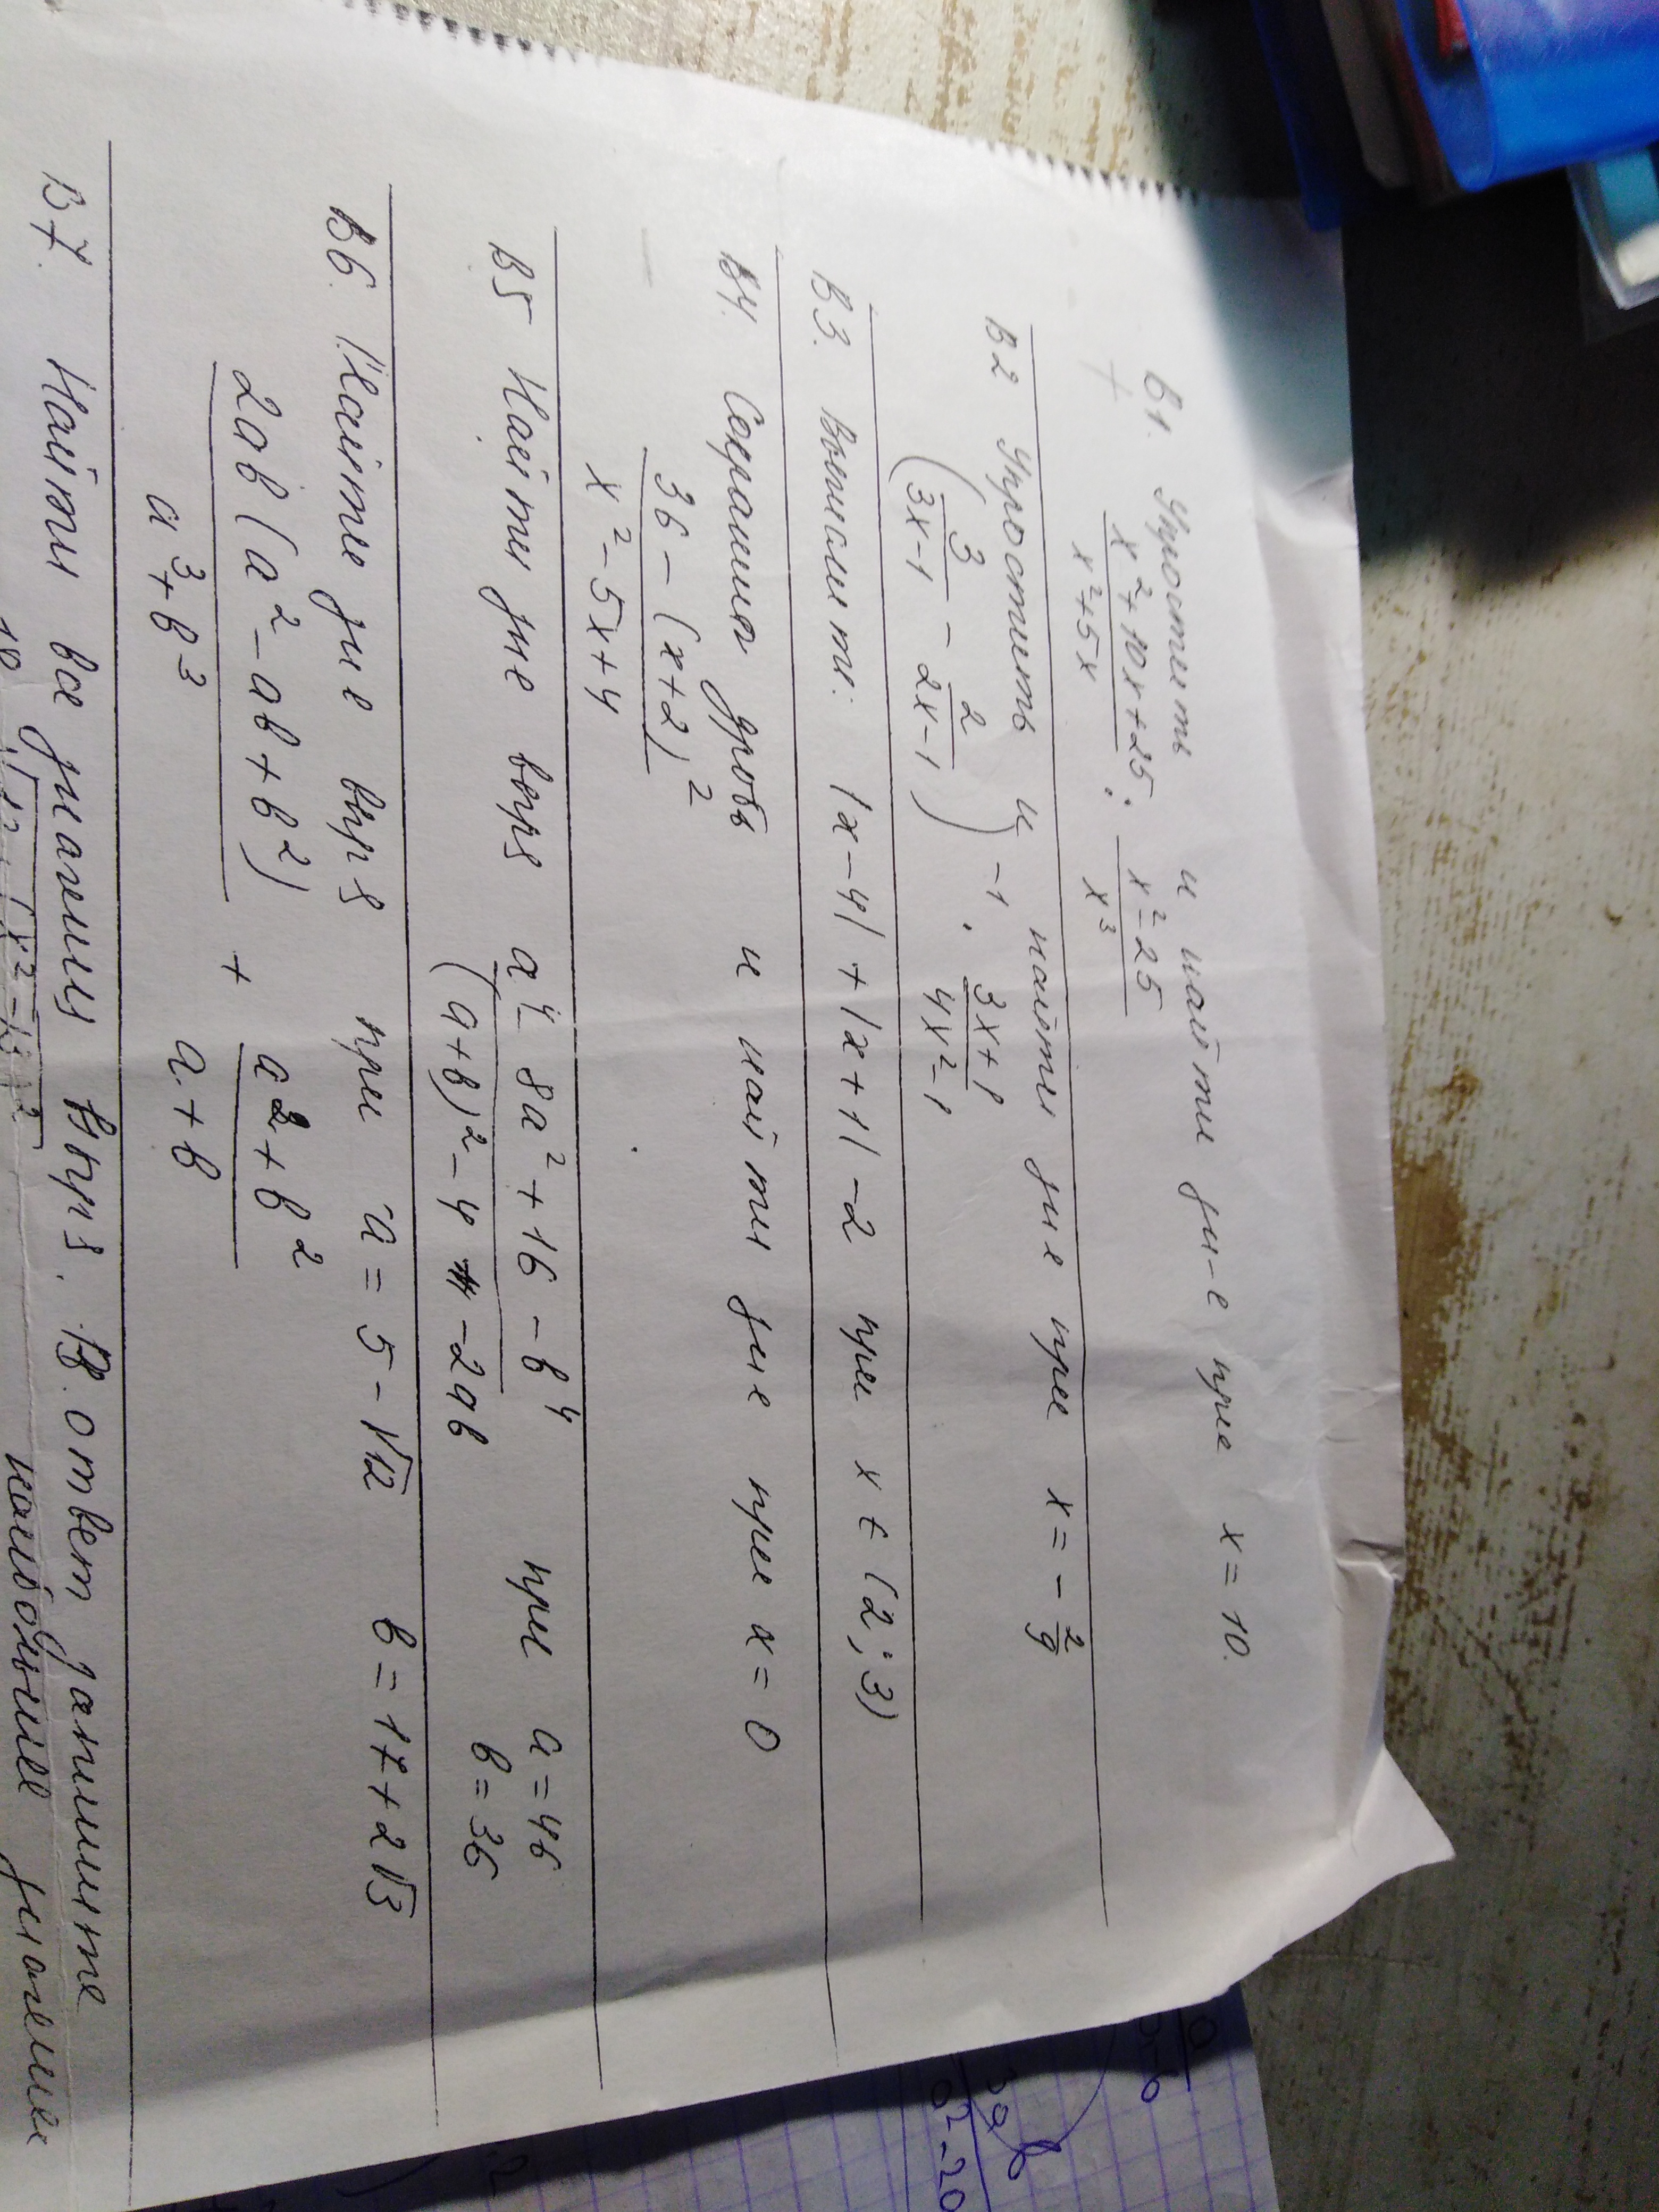 В1. Упростить и найти зн-е при x = 10.
x² + 10x + 25 / x² + 5x : x² - 25 / x³
В2 Упростить и найти зне при x = - 2/9
(3 / 3x-1 - 2 / 2x-1)⁻¹ · 3x+1 / 4x²-1
В3. Вычислить. |x-4| + |x+1| -2 при x ∈ (2; 3)
В4. Сократить дробь и найти зне при x = 0
36 - (x+2)² / x² - 5x + 4
В5 Найти зне выр a⁴ - 8a² + 16 - b⁴ / (a+b)² - 4 - 2ab при a = 46
b = 36
В6. Найти зне выр при a = 5 - √12 b = 17 + 2√3
2ab (a² - ab + b²) / a³ + b³ + a² + b² / a + b
В7. Найти все значения выр. В ответ запишите
наибольшее значение